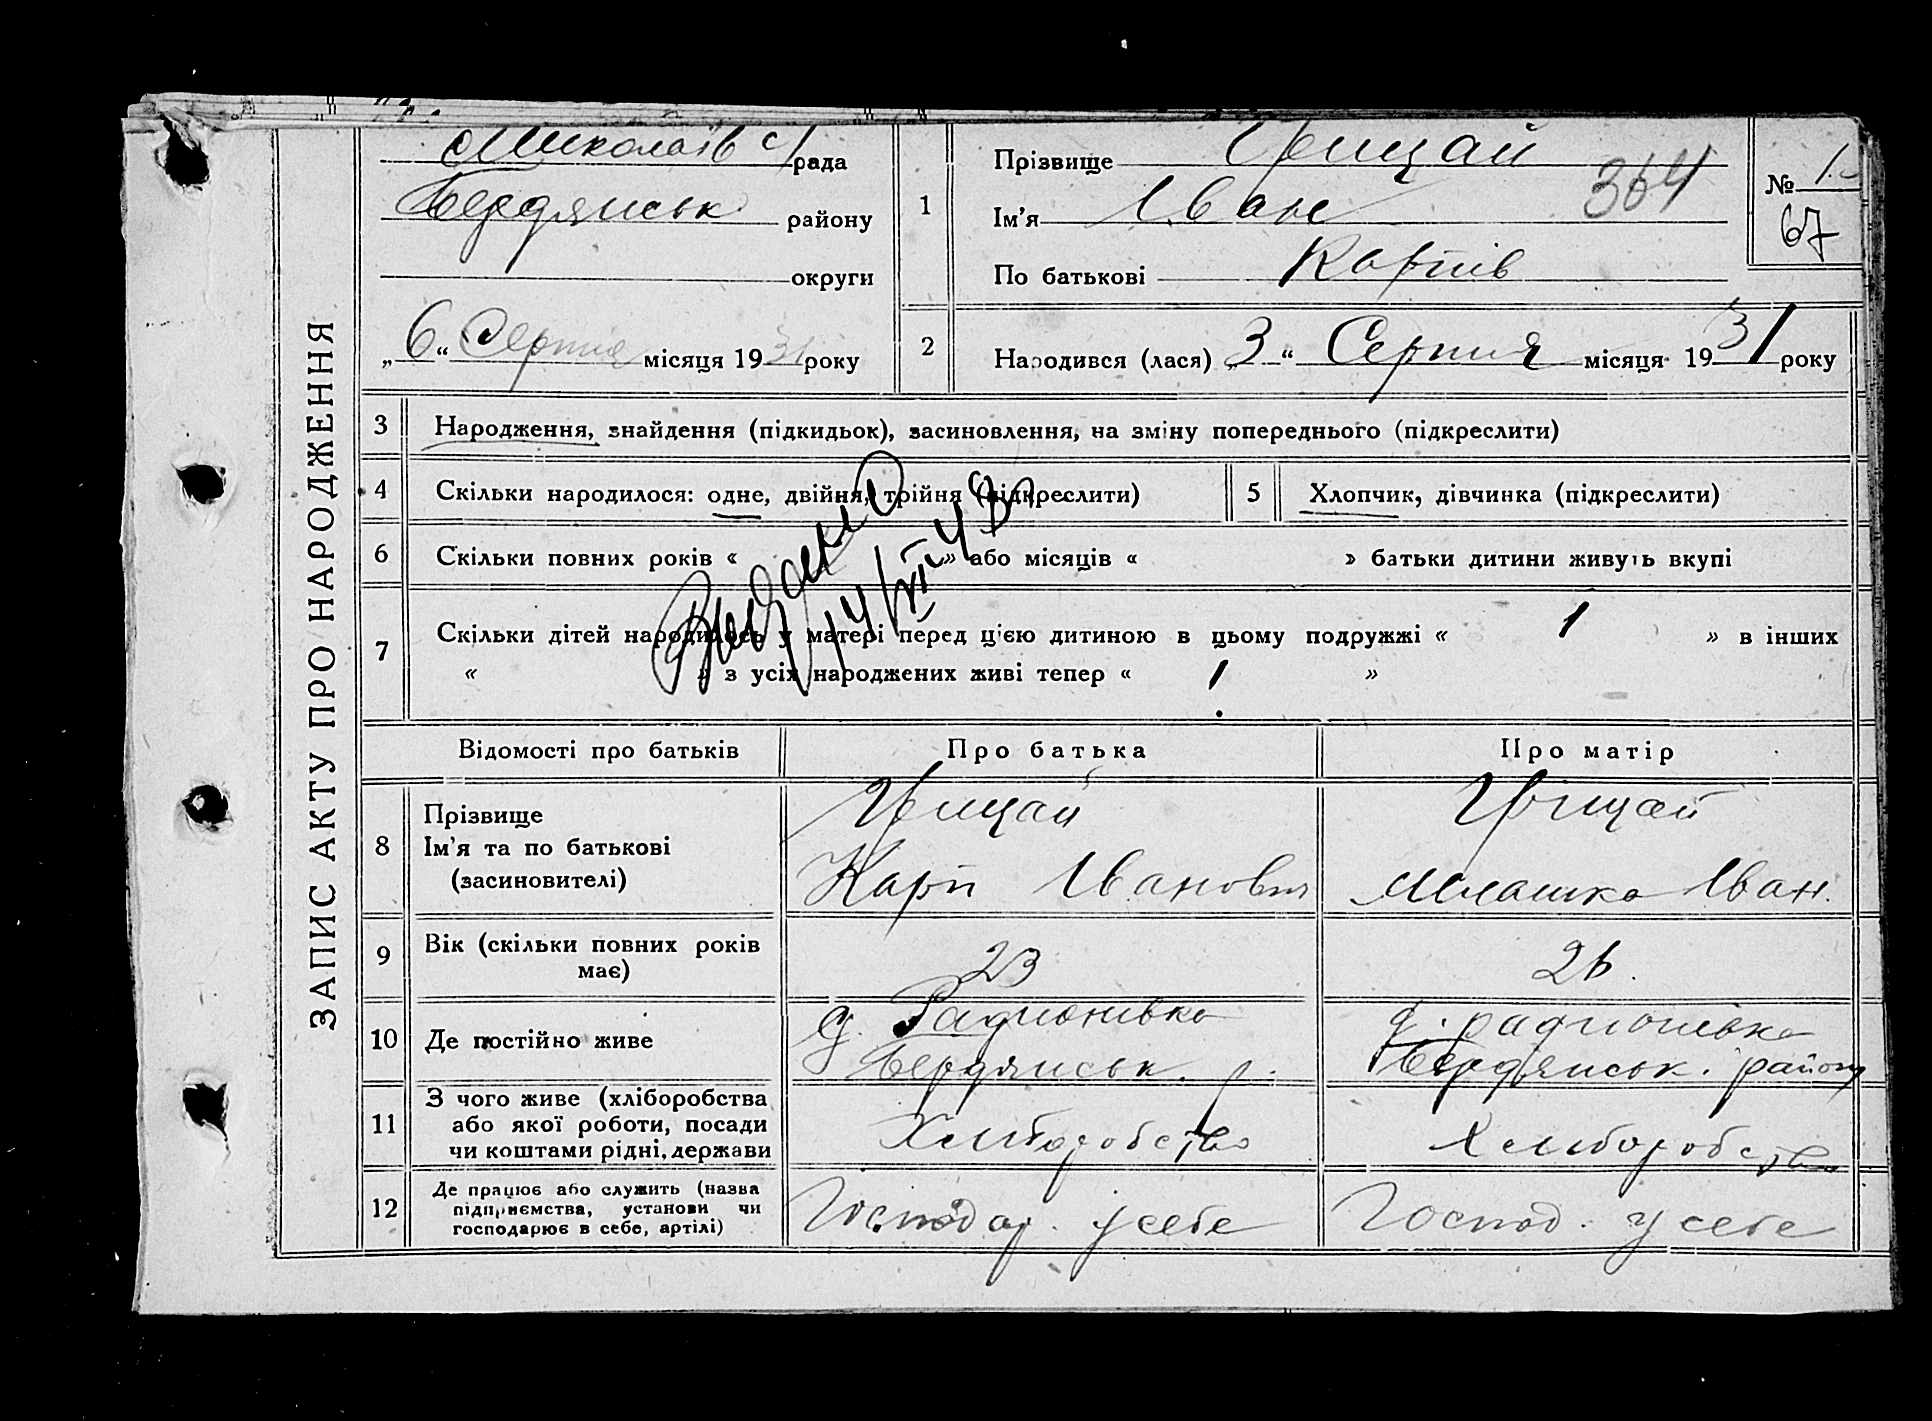 ЗАПИС АКТУ ПРО НАРОДЖЕННЯ
Миколаїв с/рада
Бердянськ району
округи
„6“ Серпня місяця 1931 року
1
Прізвище Грицай
Ім'я Іван
364
По батькові Карпів
№
67
2
Народився (лася) „3“ Серпня місяця 1931 року
3 Народження, знайдення (підкидьок), засиновлення, на зміну попереднього (підкреслити)
4 Скільки народилося: одне, двійня, трійня (підкреслити)
5 Хлопчик, дівчинка (підкреслити)
6 Скільки повних років « » або місяців « » батьки дитини живуть вкупі
7 Скільки дітей народилось у матері перед цією дитиною в цьому подружжі « 1 » в інших
« » з усіх народжених живі тепер « 1 »
14/VII 48
Відомості про батьків Про батька Про матір
8 Прізвище
Ім'я та по батькові
(засиновителі)
Грицай
Карп Іванович
Грицай
Мелашка Іван.
9 Вік (скільки повних років
має)
23
26.
10 Де постійно живе
с. Радионівка
Бердянськ. р.
с. радионівка
Бердянськ. району
11 З чого живе (хліборобства
або якої роботи, посади
чи коштами рідні, держави
Хліборобство
Хліборобство
12 Де працює або служить (назва
підприємства, установи чи
господарює в себе, артілі)
Господар. у себе
Господ. у себе